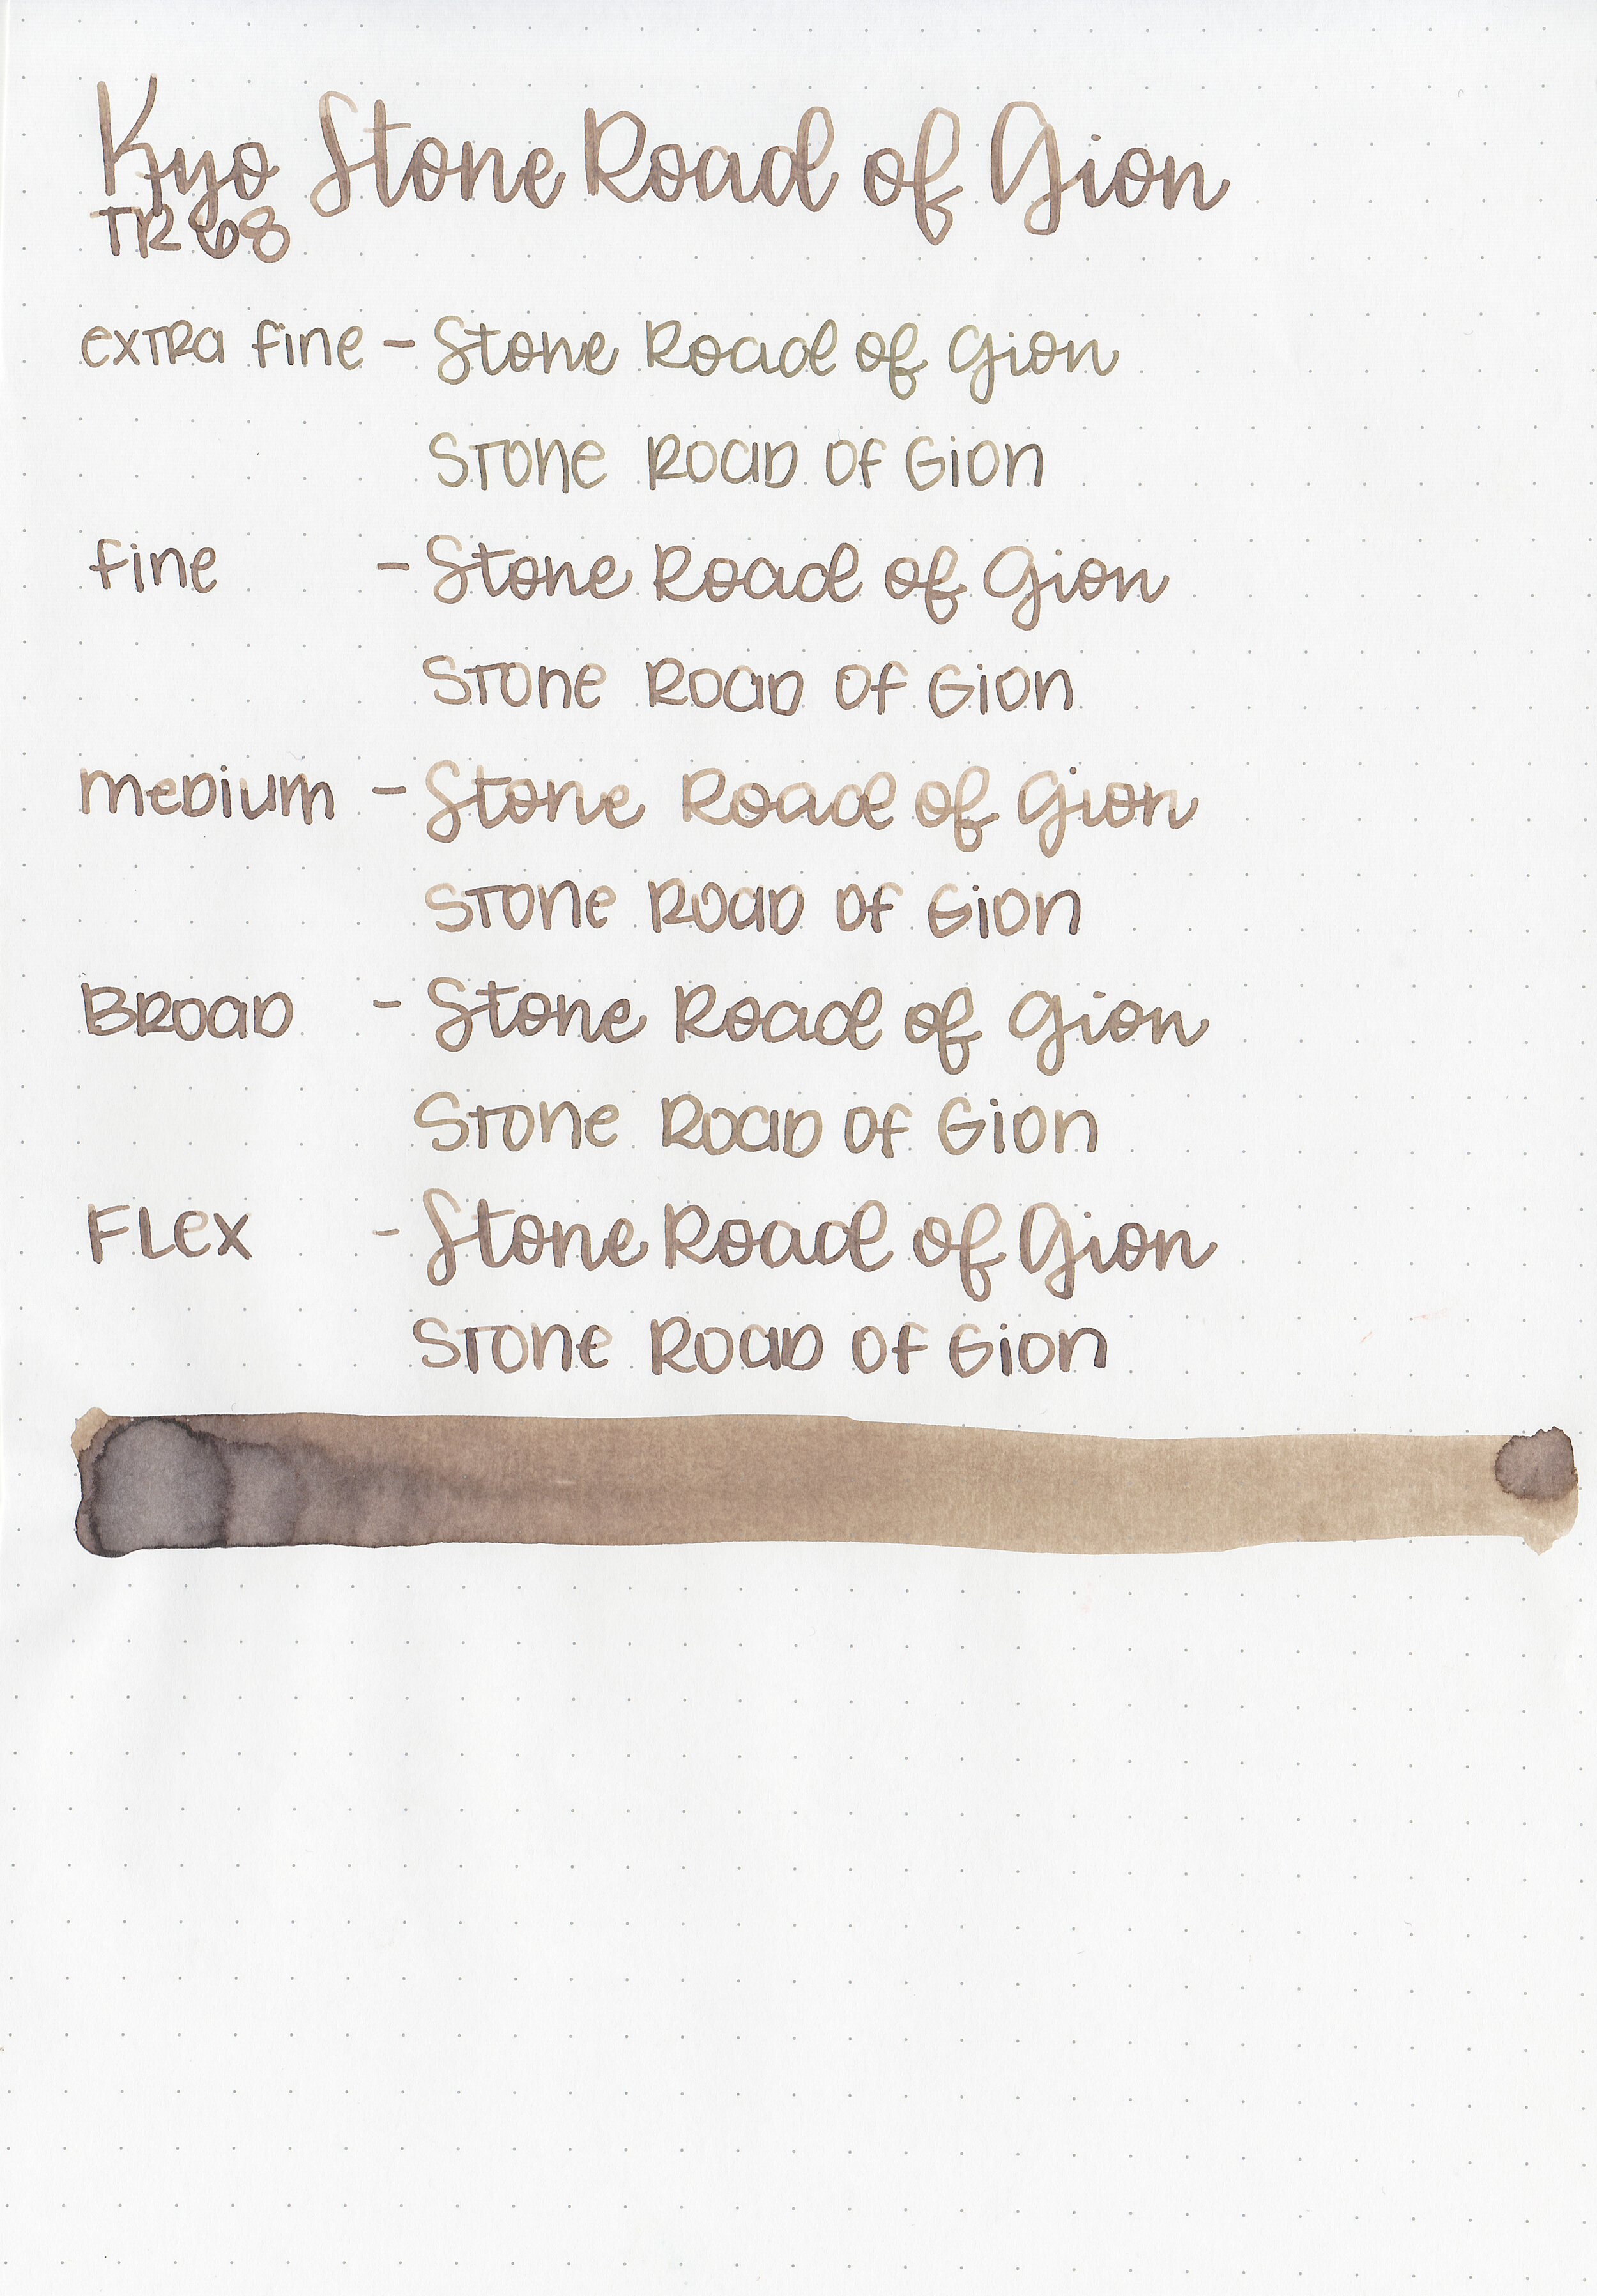 Kyo Stone Road of Gion
TR 68
extra fine - Stone Road of Gion
Stone Road of Gion
fine - Stone Road of Gion
Stone Road of Gion
medium - Stone Road of Gion
Stone Road of Gion
Broad - Stone Road of Gion
Stone Road of Gion
Flex - Stone Road of Gion
Stone Road of Gion